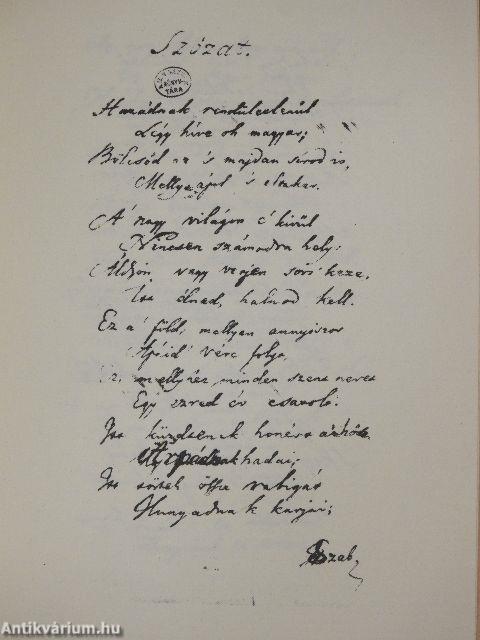 Szózat.
KÖNYV-
TÁRA
Hazádnak rendületlenűl
Légy híve oh magyar;
Bölcsőd ez 's majdan sírod is,
Melly ápol 's eltakar.
A' nagy világon e' kivűl
Nincsen számodra hely;
Áldjon vagy verjen sors keze,
Itt élned, halnod kell.
Ez a' föld, mellyen annyiszor
Apáid' vére folyt,
Ez, mellyhez minden szent nevet
Egy ezred év csatolt.
Itt küzdtenek honért a' hős
Árpádnak hadai;
Itt törtek össze rabigát
Hunyadnak karjai;
Szab
Antikvárium.hu
Antikvárium.hu